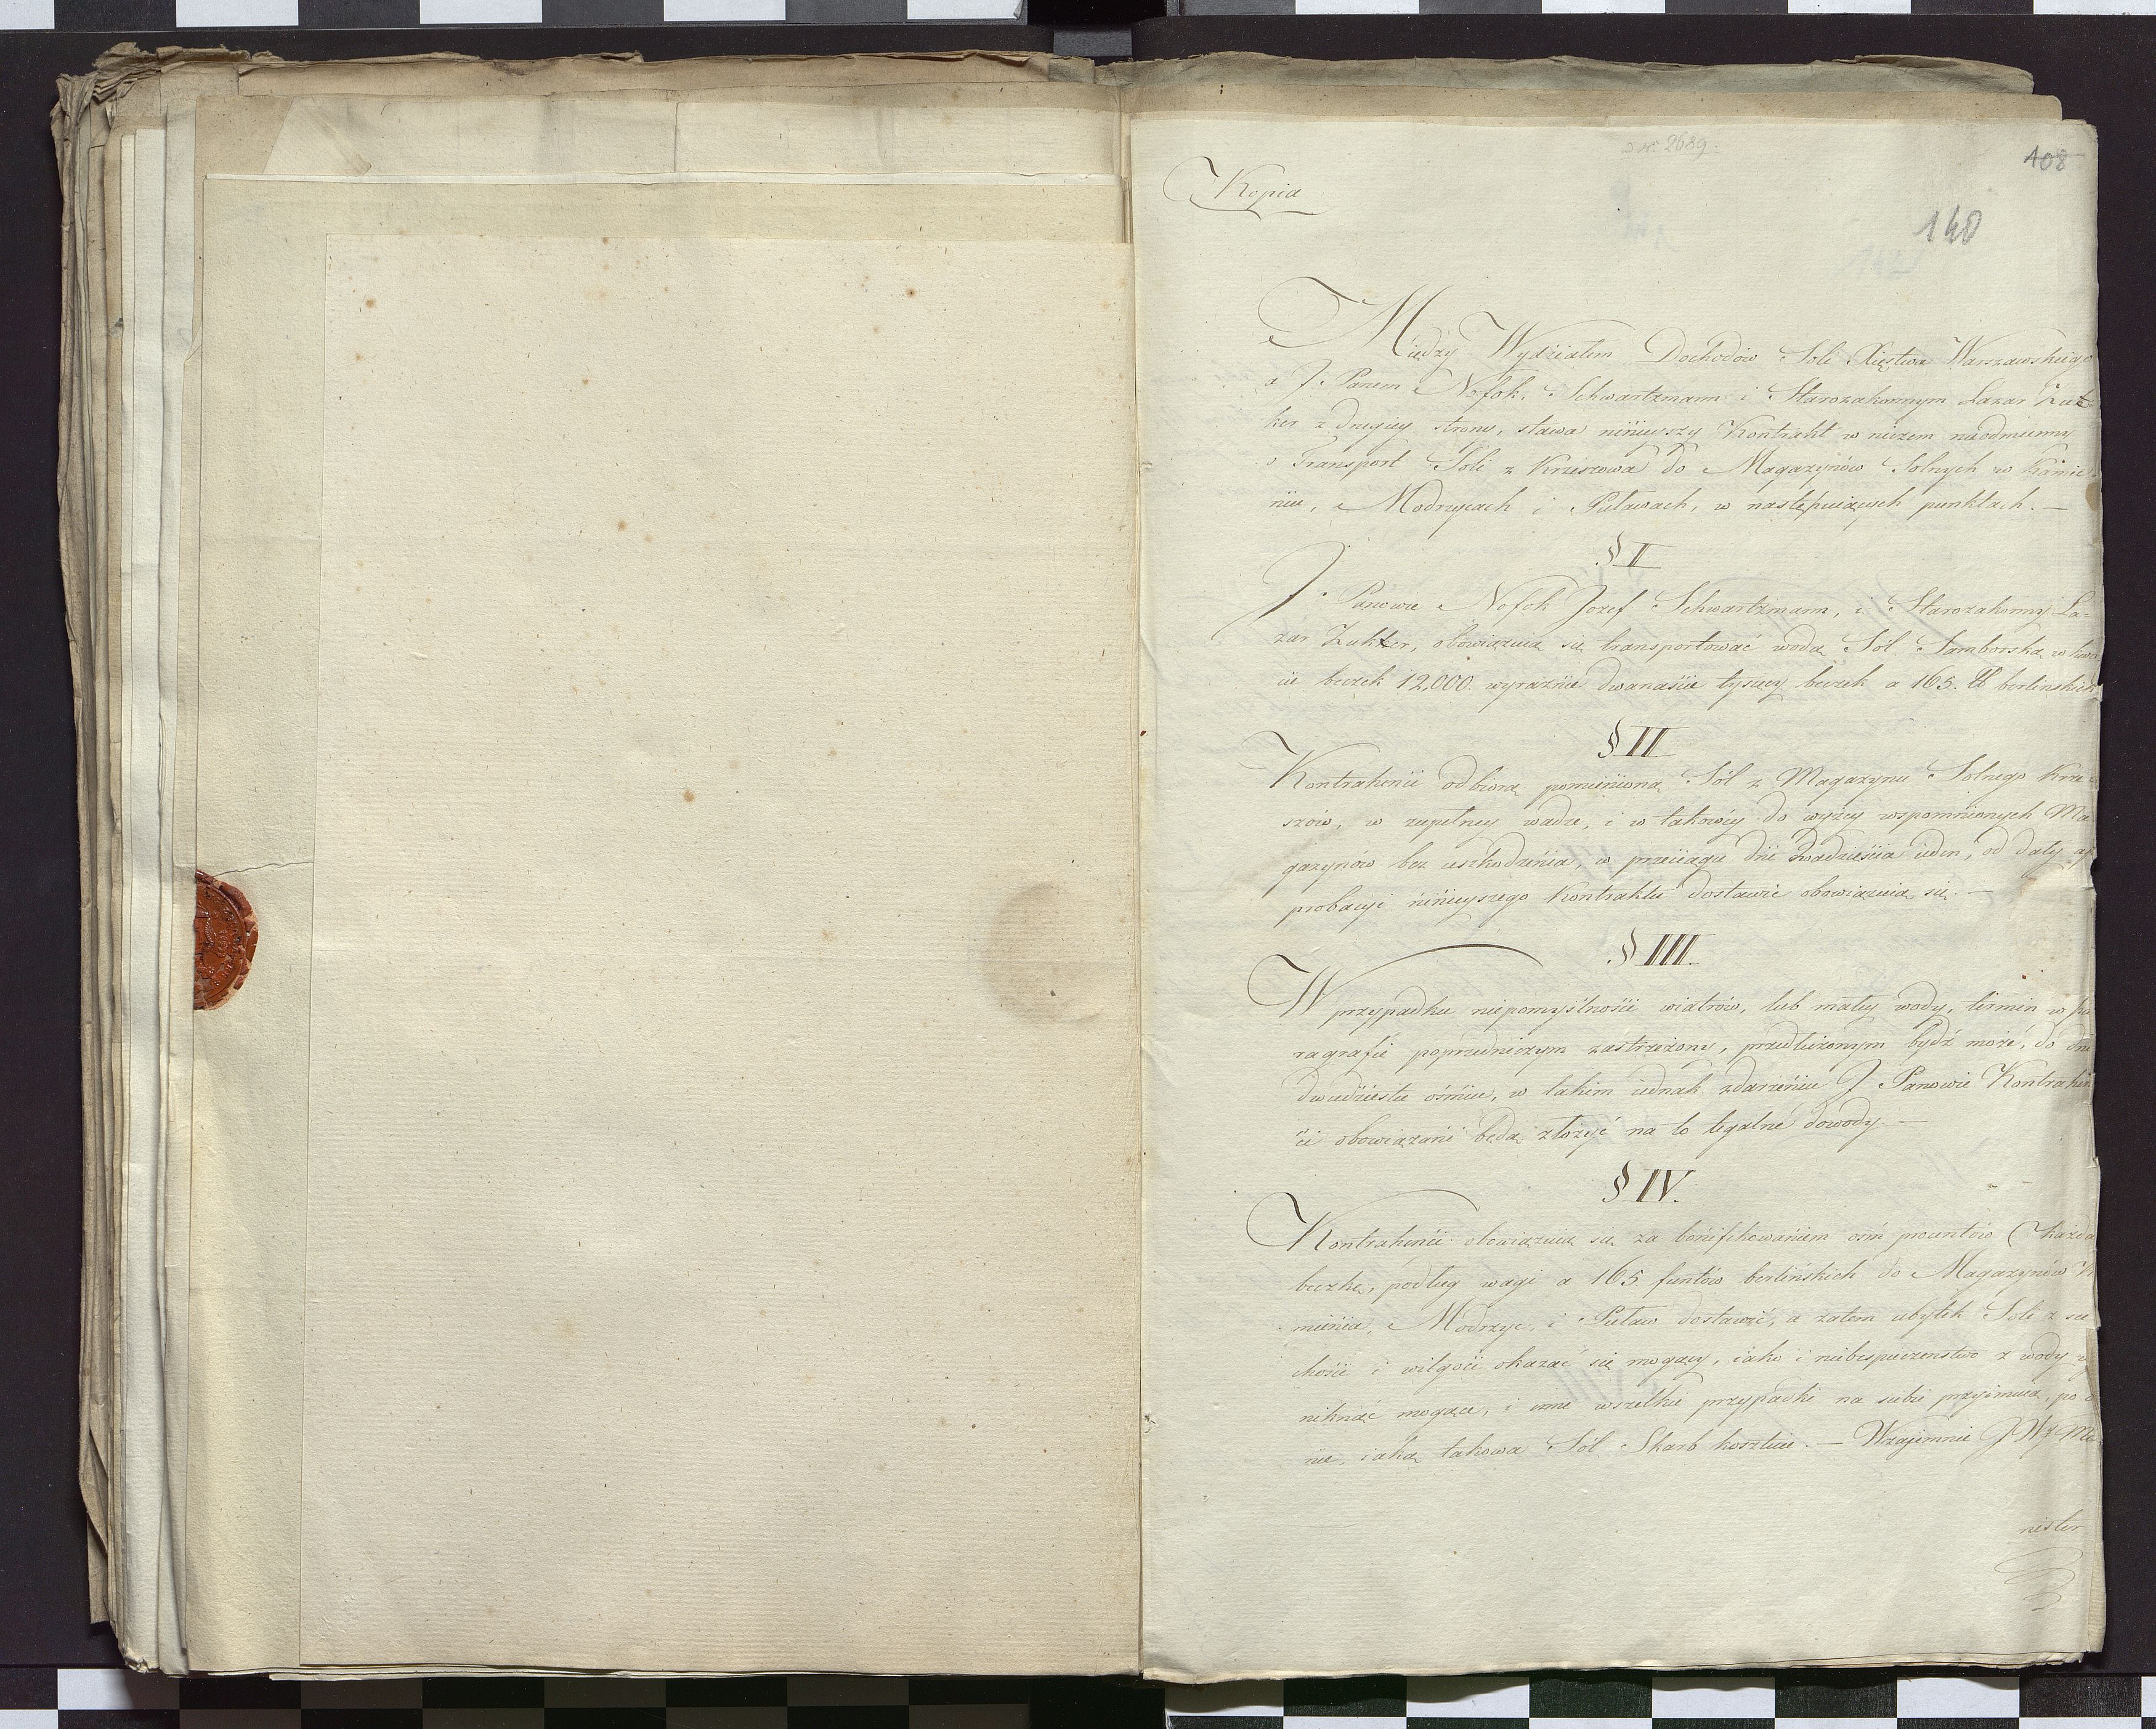 D N: 2689.
108
Kopia
140
Między Wydziałem Dochodów Soli Xięstwa Warszawskiego
a J. Panem Nofok. Schwartzmann i Starozakonnym Lazar Zuk
ker z drugiey strony, stawa ninieyszy Kontrakt w niczem nieodmienny
o Transport Soli z Krzeszowa do Magazynów Solnych w Kamie-
niu, Modrzycach i Puławach, w następuiących punktach. —
§ I
J. Panowie Nofok Jozef Schwartzmann, i Starozakonny La-
zar Zukker, obowiązuią się transportować wodą Sól Samborską w kwo
cie beczek 12,000. wyraźnie dwanaście tysięcy beczek a 165. ℔ berlinskich
§ II
Kontrahenci odbiorą pomienioną Sól z Magazynu Solnego Krze-
szów, w zupełney wadze, i w takowéy do wyżey wspomnionych Ma
gazynów bez uszkodzenia, w przeciągu dni dwadzieścia ieden, od daty ap
probacyi ninieyszego Kontraktu dostawić obowiązuią się. —
§ III.
W przypadku niepomyślności wiatrów, lub małey wody, termin w pa
ragrafie poprzedniczym zastrzeżony, przedłużonym bydź może, do dni
dwudziestu ośmiu, w takim iednak zdarzeniu J Panowie Kontrahen
ci obowiązani będą złożyć na to legalne dowody. —
§ IV.
Kontrahenci obowiązuią się za bonifikowaniem ośm procentów każdą
beczkę, podług wagi a 165 funtów berlińskich do Magazynów K
mienia, Modrzyc, i Puław dostawić, a zatem ubytek Soli z su
chości i wilgoci okazać się mogący, iako i niebespieczenstwo z wody w
niknąć mogące, i inne wszelkie przypadki na siebie przyimuią, po ce
nie, iaką takowa Sól Skarb kosztuie. — Wzaiemnie J W. Mi
nister